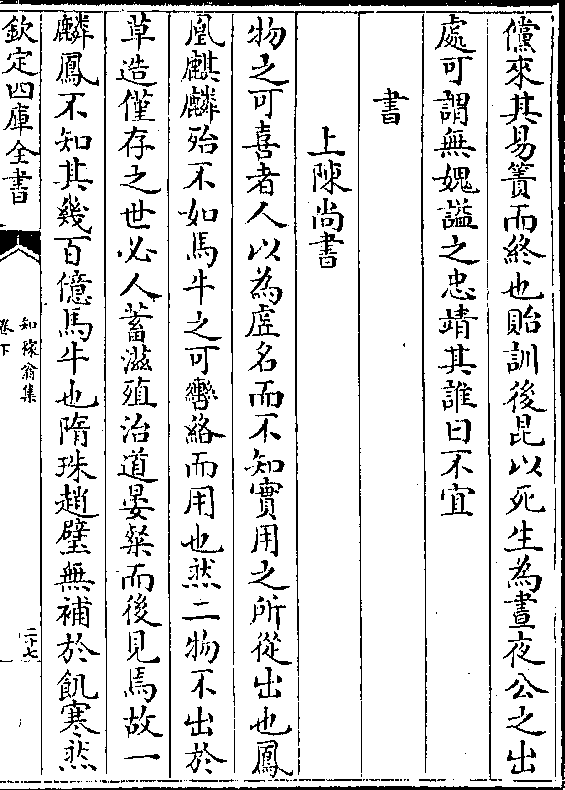 儻來其易簀而終也貽訓後昆以死生為晝夜公之出
處可謂無媿謚之忠靖其誰曰不宜
書
上陳尚書
物之可喜者人以為虚名而不知實用之所從出也鳳
凰麒麟殆不如馬牛之可轡絡而用也然二物不出於
草造僅存之世必人蓄滋殖治道晏粲而後見焉故一
麟鳳不知其幾百億馬牛也隋珠趙璧無補於飢寒然
欽定四庫全書
知稼翁集
卷下
二十七